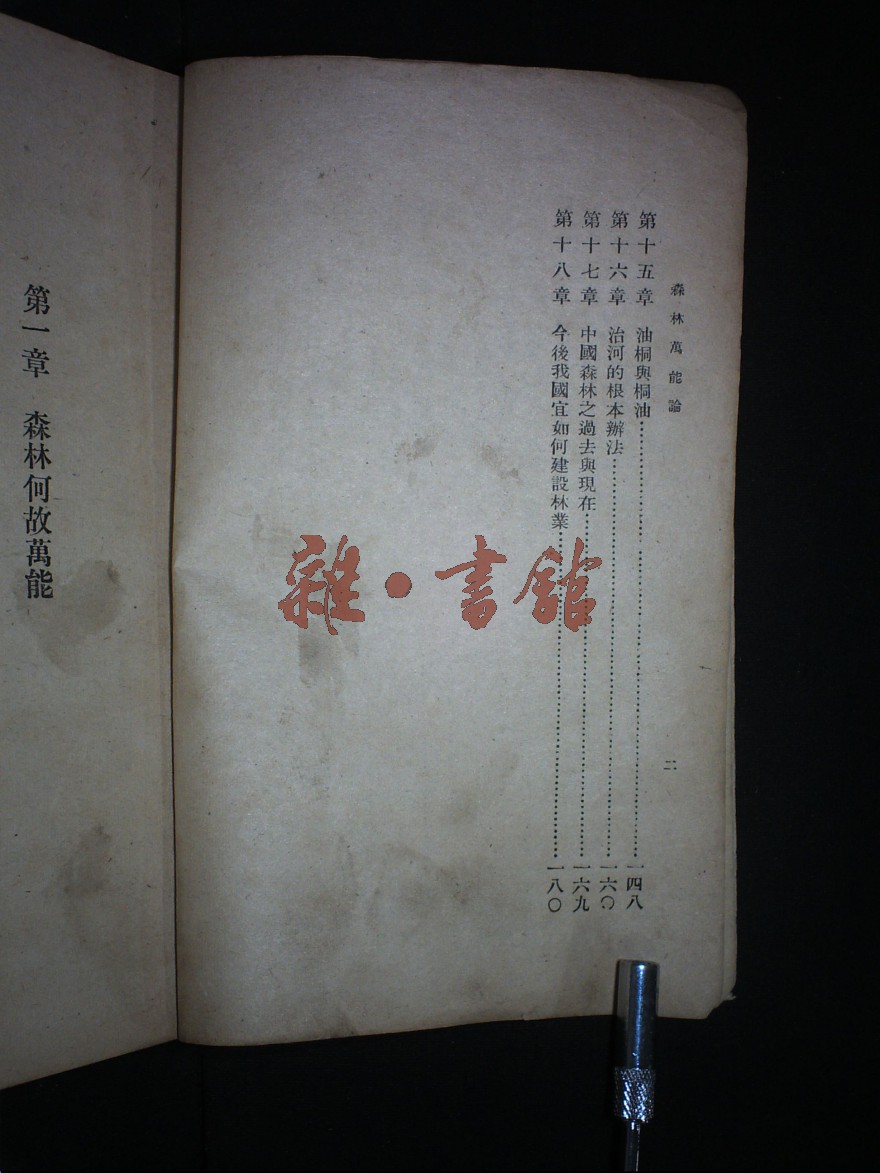 森林萬能論
二
第十五章 油桐與桐油……一四八
第十六章 治河的根本辦法……一六〇
第十七章 中國森林之過去與現在……一六九
第十八章 今後我國宜如何建設林業……一八〇
雜·書館
第一章 森林何故萬能